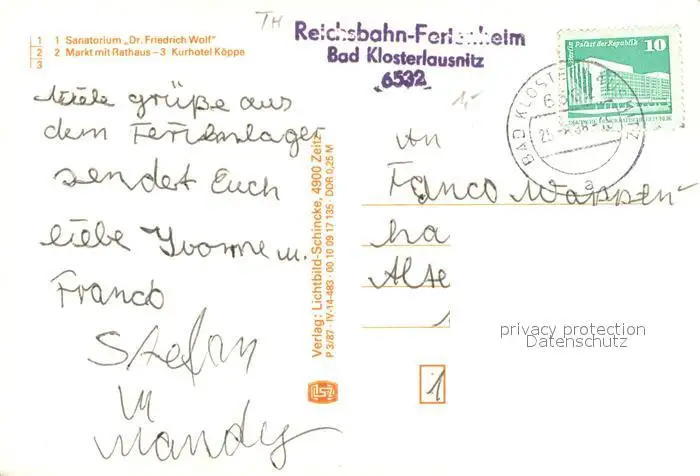 1 1 Sanatorium „Dr. Friedrich Wolf"
2 2 Markt mit Rathaus – 3 Kurhotel Köppe
3
TH
Reichsbahn-Ferienheim
Bad Klosterlausnitz
6532
Berlin Palast der Republik 10
DEUTSCHE DEMOKRATISCHE REPUBLIK
BAD KLOSTERLAUSNITZ
a
Viele grüße aus
dem Ferienlager
sendet Euch
liebe Yvonne u.
Franco
Stefan
u
Mandy
Verlag: Lichtbild-Schincke, 4900 Zeitz
P 3/87 · IV-14-483 · 00 10 09 17 135 · DDR 0,25 M
An
Franco Wappen-
ha
Alte
1
1
privacy protection
Datenschutz